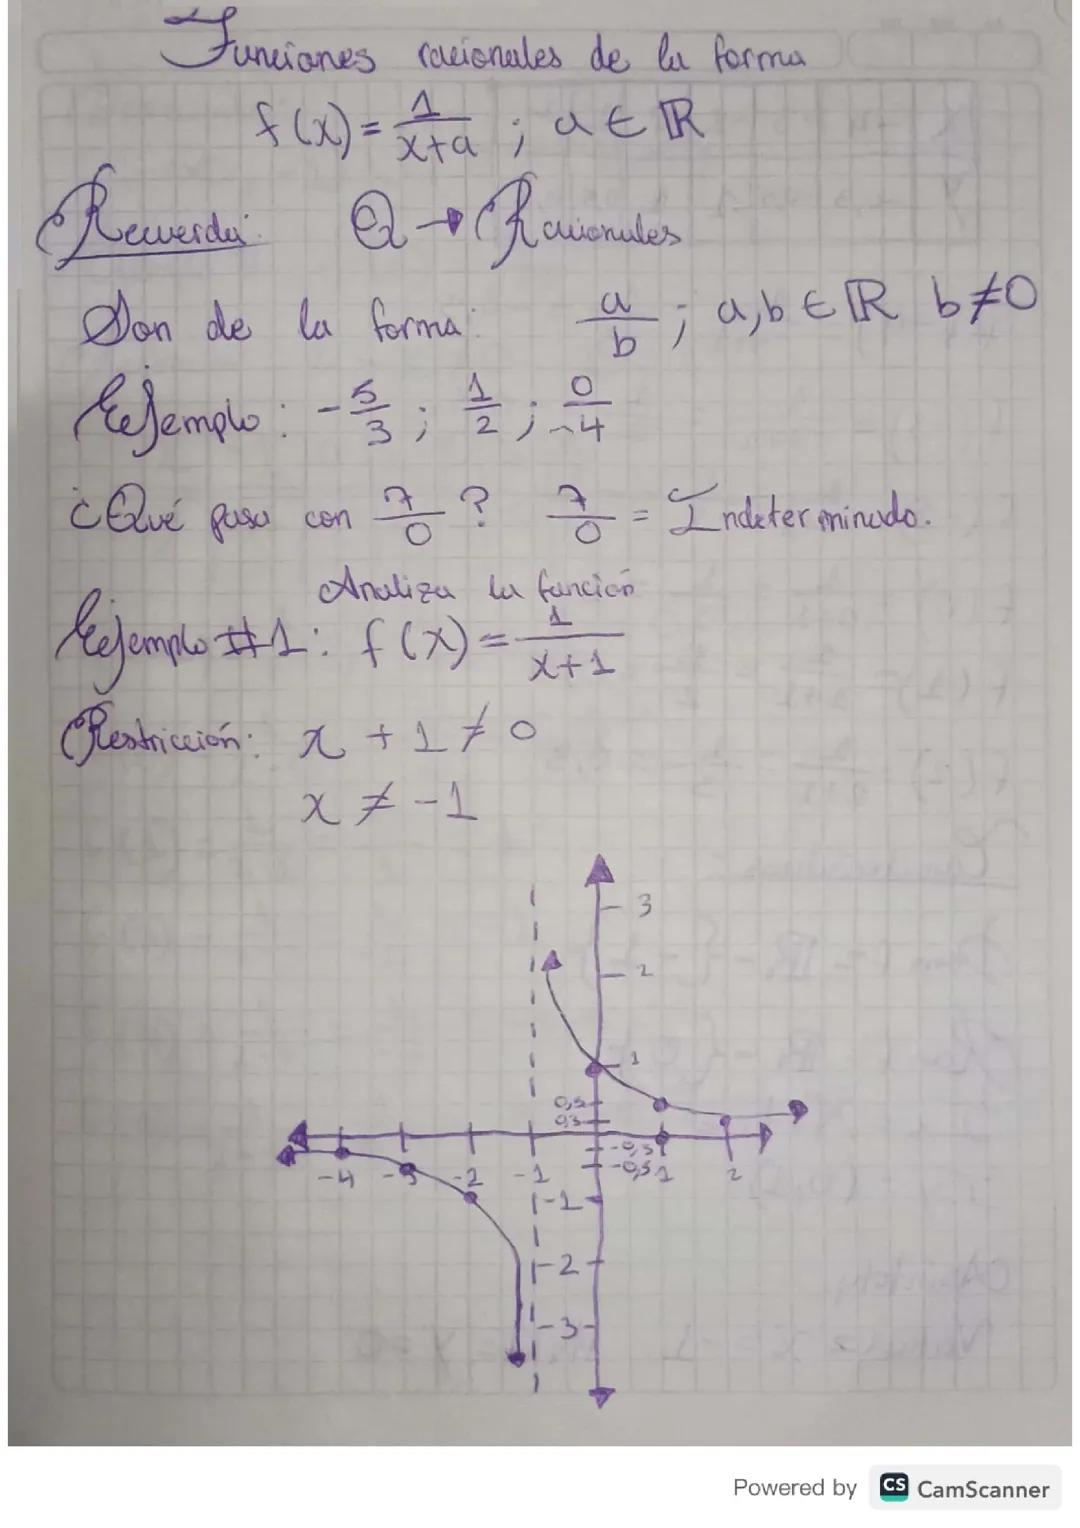 Funciones racionales de la forma
f(x) = 1/(x+a) ; a ∈ ℝ
Recuerda: Q → Racionales
Son de la forma: a/b ; a,b ∈ ℝ b≠0
Ejemplo: -5/3 ; 1/2 ; 0/-4
¿Qué pasa con 7/0 ? 7/0 = Indeterminado.
Analiza la función
Ejemplo #1: f(x) = 1/(x+1)
Restricción: x + 1 ≠ 0
x ≠ -1
3
2
1
0,5
0,3
-4 -3 -2 -1 1 2
-0,3
-0,5
-1
-2
-3
Powered by CS CamScanner